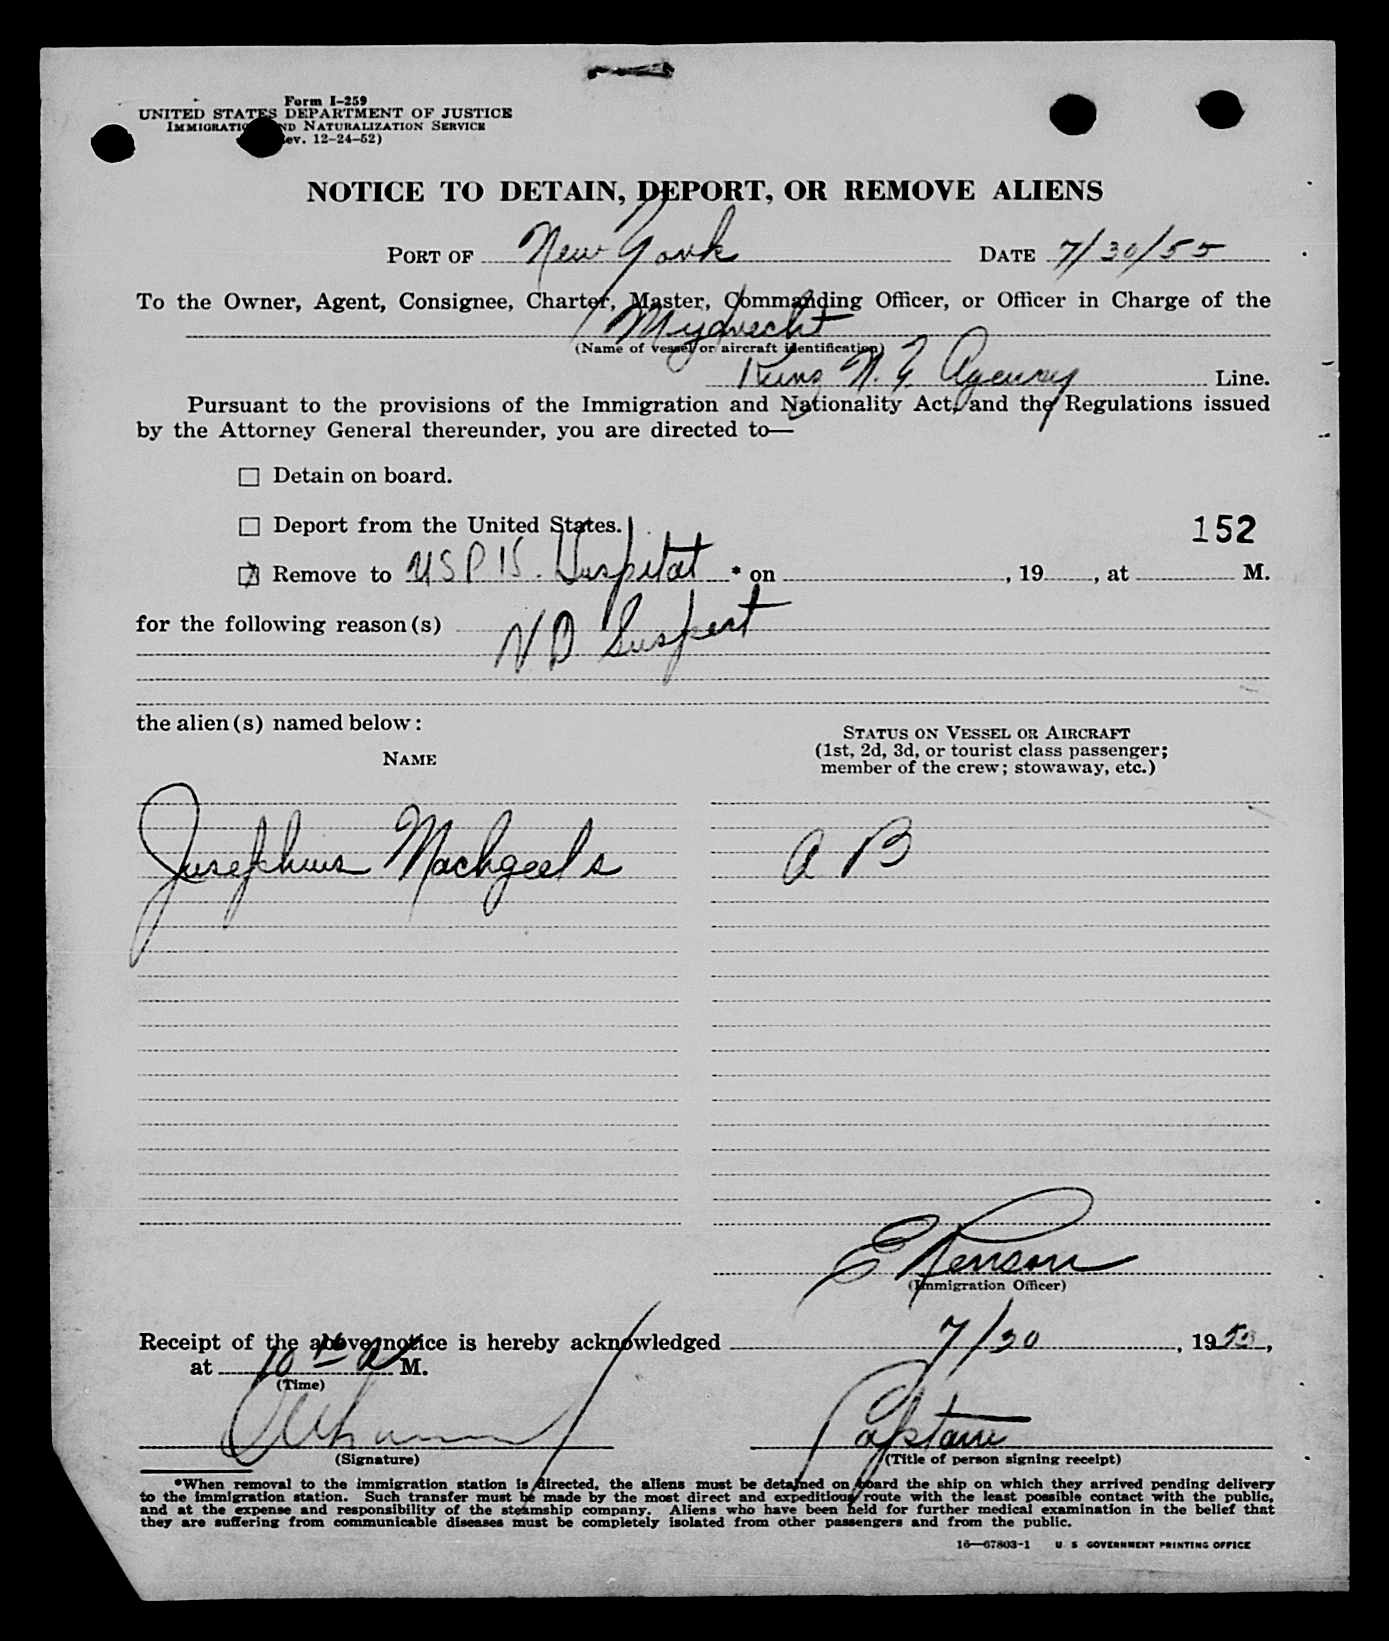 Form I-259
UNITED STATES DEPARTMENT OF JUSTICE
IMMIGRATION AND NATURALIZATION SERVICE
ev. 12-24-52)
NOTICE TO DETAIN, DEPORT, OR REMOVE ALIENS
PORT OF New York DATE 7/30/55
To the Owner, Agent, Consignee, Charter, Master, Commanding Officer, or Officer in Charge of the
Mijdrecht
(Name of vessel or aircraft identification)
Kunz N.Y. Agency Line.
Pursuant to the provisions of the Immigration and Nationality Act, and the Regulations issued
by the Attorney General thereunder, you are directed to—
Detain on board.
Deport from the United States.
152
Remove to USPHS. Hospital * on , 19 , at M.
for the following reason(s) VD Suspect
the alien(s) named below:
NAME
STATUS ON VESSEL OR AIRCRAFT
(1st, 2d, 3d, or tourist class passenger;
member of the crew; stowaway, etc.)
Josephus Machgeels AB
E Renson
(Immigration Officer)
Receipt of the above notice is hereby acknowledged 7/30, 1955,
at 10 A M.
(Time)
Captain
(Signature) (Title of person signing receipt)
*When removal to the immigration station is directed, the aliens must be detained on board the ship on which they arrived pending delivery
to the immigration station. Such transfer must be made by the most direct and expeditious route with the least possible contact with the public,
and at the expense and responsibility of the steamship company. Aliens who have been held for further medical examination in the belief that
they are suffering from communicable diseases must be completely isolated from other passengers and from the public.
16—67803-1 U S GOVERNMENT PRINTING OFFICE